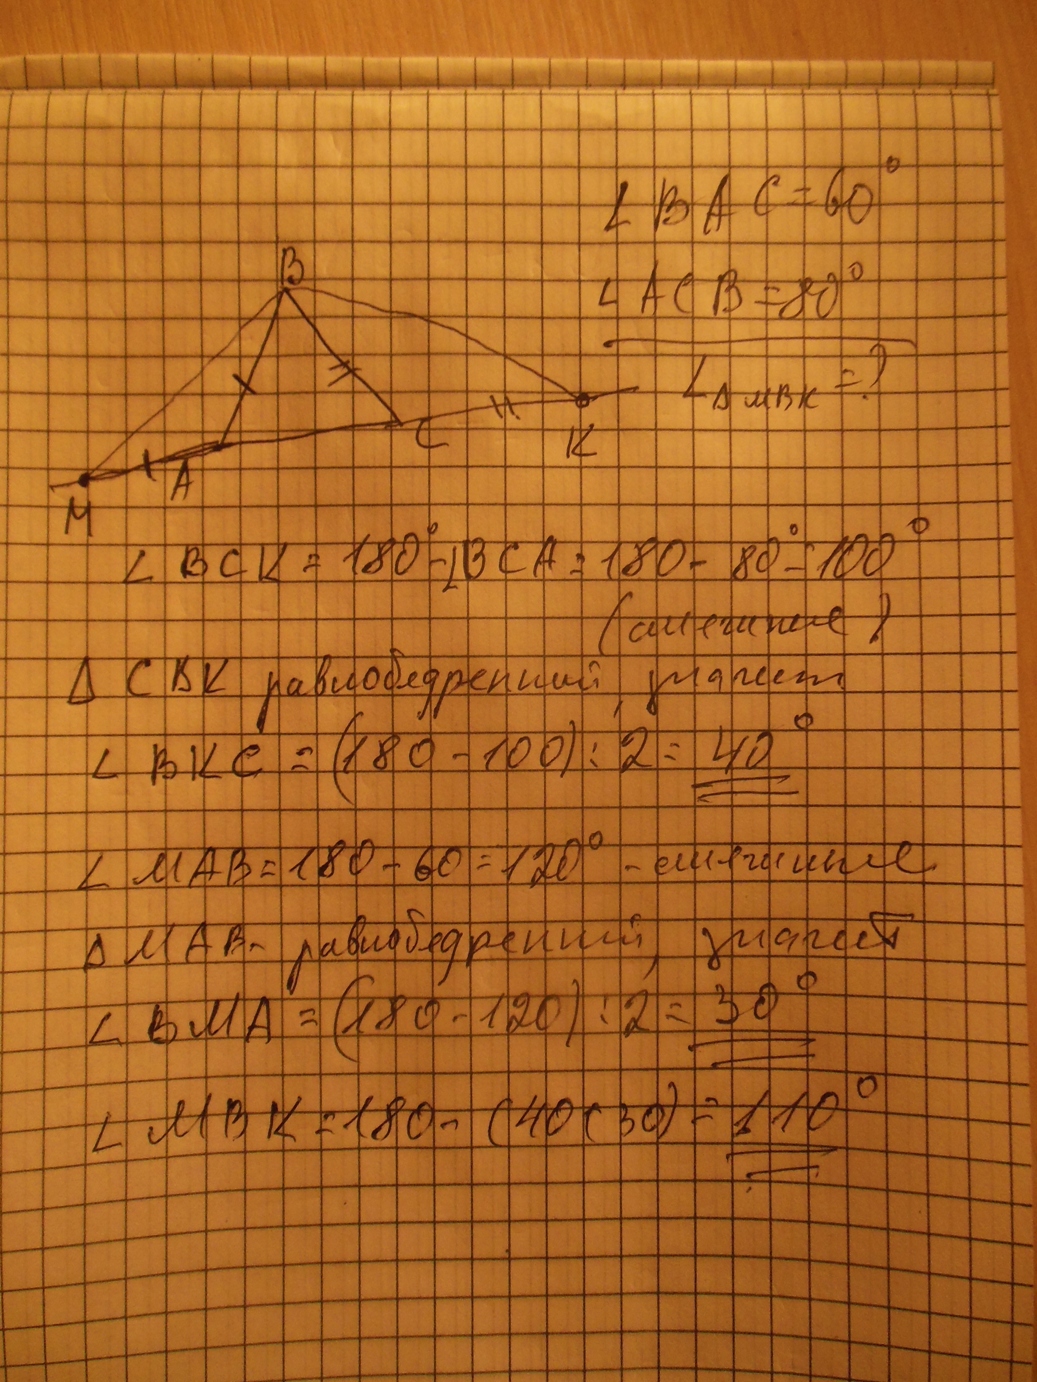 ∠ BAC = 60°
∠ ACB = 80°
∠ Δ MBK = ?
B
M
A
C
K
∠ BCK = 180° - ∠BCA = 180 - 80° = 100°
(смежные)
Δ CBK равнобедренный, значит
∠ BKC = (180 - 100) : 2 = 40°
∠ MAB = 180 - 60 = 120° - смежные
Δ MAB - равнобедренный, значит
∠ BMA = (180 - 120) : 2 = 30°
∠ MBK = 180 - (40 ( 30) = 110°